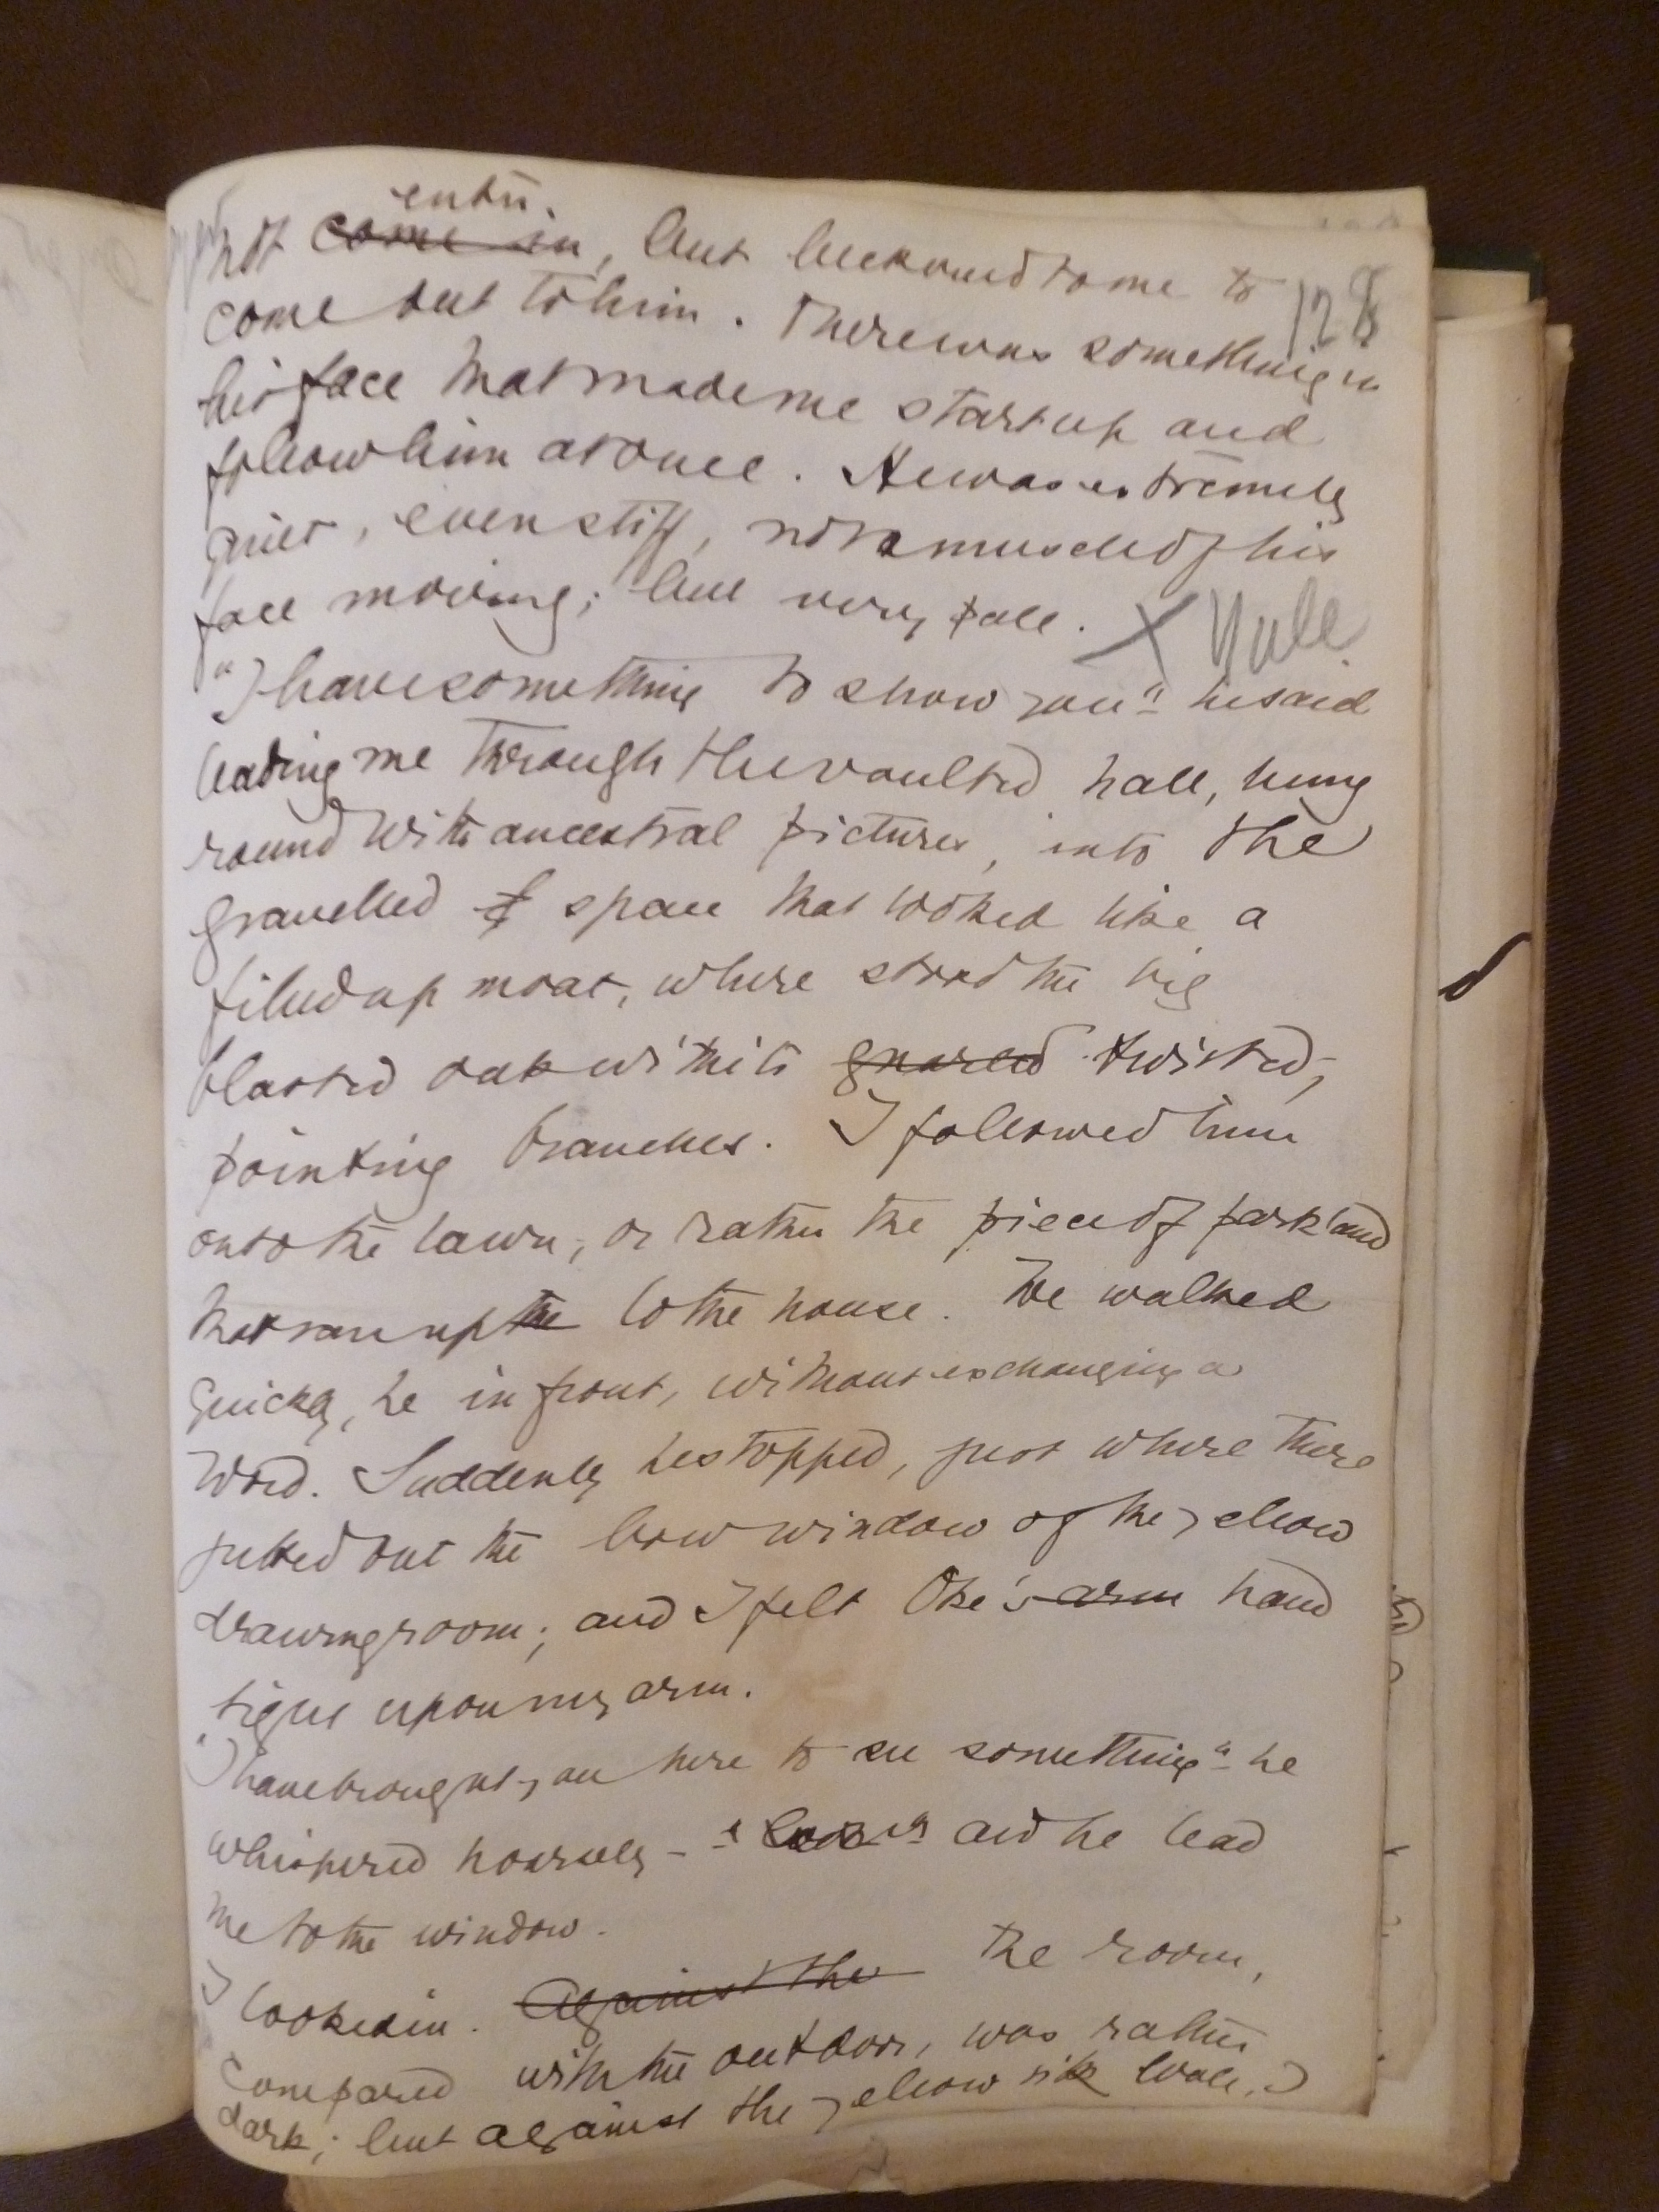 enter.
not come in, but beckoned to me to
128
come out to him. There was something in
his face that made me start up and
follow him at once. He was extremely
quiet, even stiff, not a muscle of his
face moving; but very pale. X Yule
"I have something to show you" he said
leading me through the vaulted hall, hung
round with ancestral pictures, into the
gravelled f space that looked like a
filled up moat, where stood the big
blasted oak with its gnarled twisted,
pointing branches. I followed him
onto the lawn, or rather the piece of parkland
that ran up the to the house. We walked
quickly, he in front, without exchanging a
word. Suddenly he stopped, just where there
jutted out the bow window of the yellow
drawingroom; and I felt Oke's arm hand
tight upon my arm.
"I have brought you here to see something" he
whispered hoarsely - "look" and he lead
me to the window.
I looked in. Against the The room,
compared with the out door, was rather
dark; but against the yellow silk wall, I